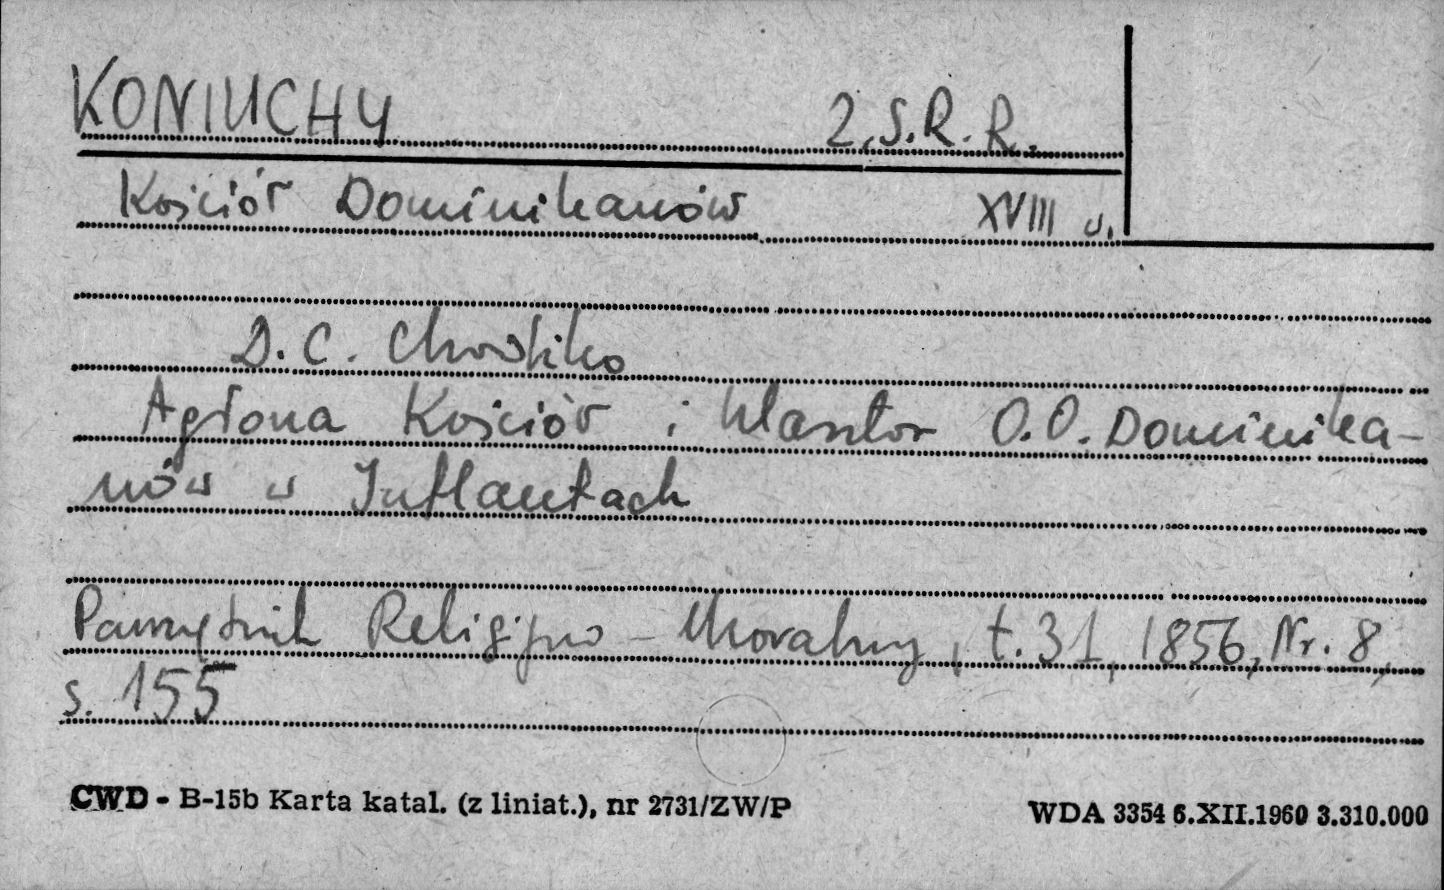 KONIUCHY Z.S.R.R.
Kościół Dominikanów XVIII w.
D. C. Chodźko
Agłona Kościół i klasztor O.O. Dominika-
nów w Inflantach
Pamiętnik Religijno-Moralny, t. 31, 1856, Nr. 8,
s. 155
CWD - B-15b Karta katal. (z liniat.), nr 2731/ZW/P WDA 3354 6.XII.1960 3.310.000